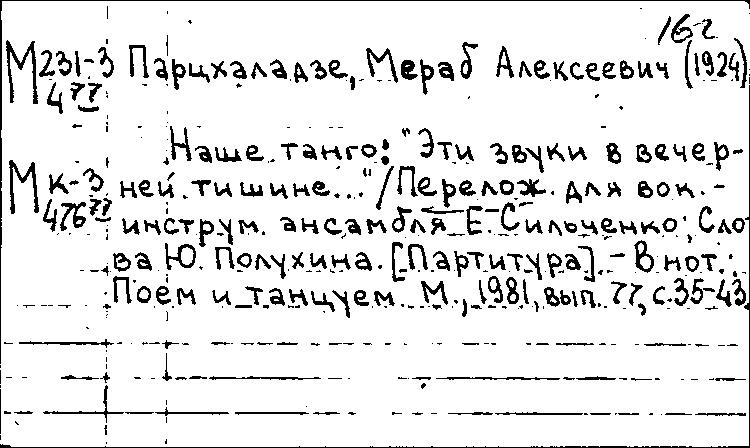 16г
М231-3 Парцхаладзе, Мераб Алексеевич (1924)
4 77
Наше танго: "Эти звуки в вечер-
М к-3 ней тишине..."/Перелож. для вок.-
476 77 инструм. ансамбля Е. Сильченко; Сло-
ва Ю. Полухина. [Партитура]. - В нот.:
Поем и танцуем. М., 1981, вып. 77, с.35-43.